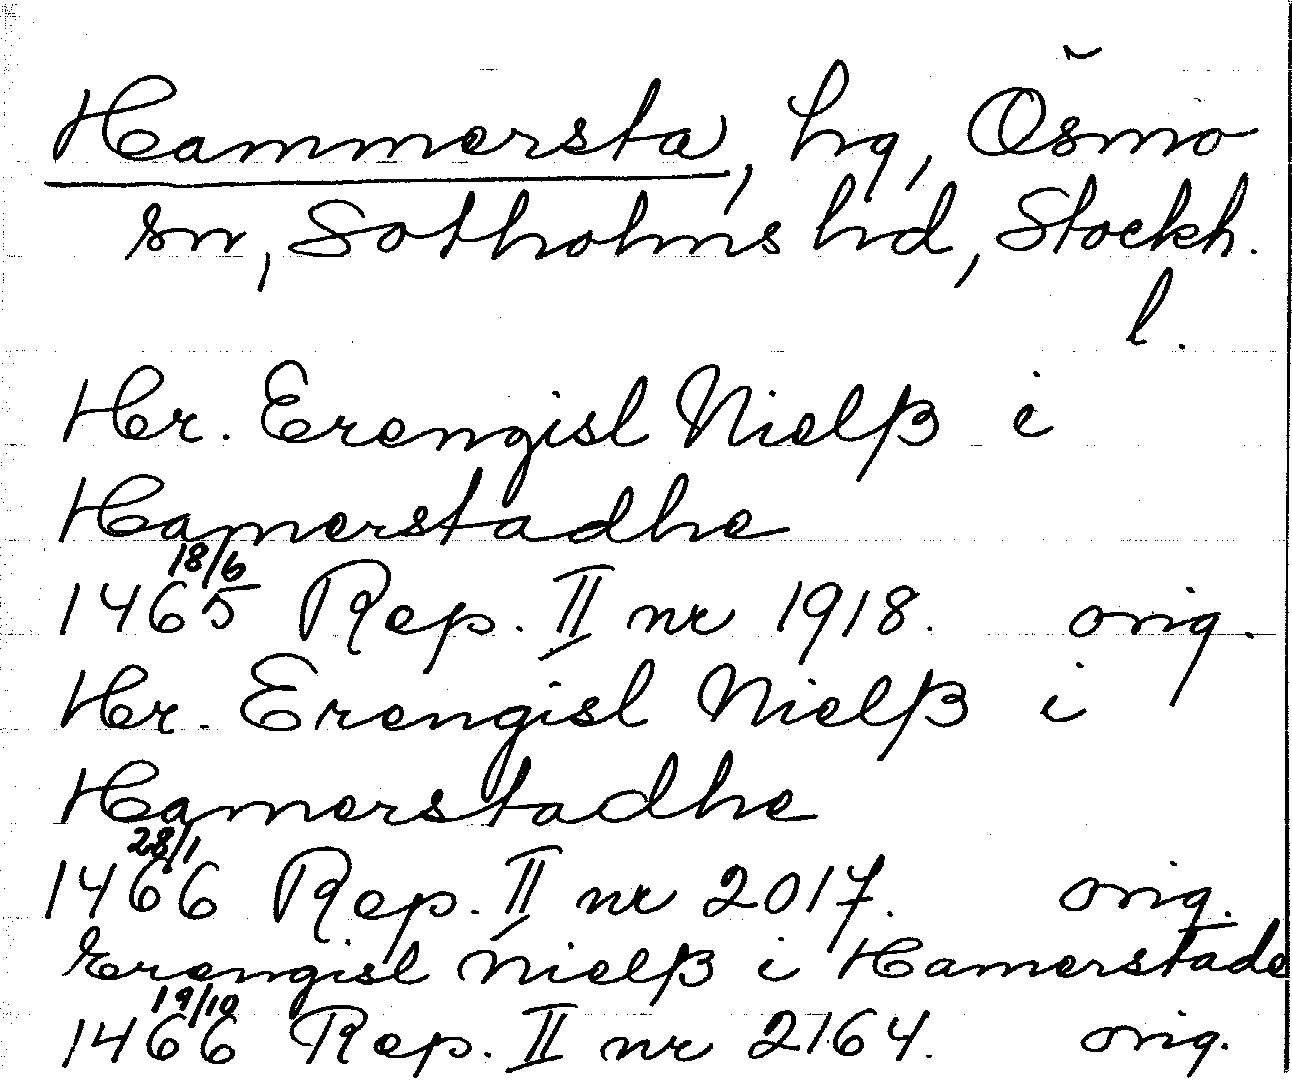 Hammersta, hg, Ösmo
sn, Sotholms hd, Stockh.
l.
Hr. Erengisl Nielß i
Hamerstadhe
18/6
1465 Rep. II nr 1918. orig.
Hr. Erengisl Nielß i
Hamerstadhe
28/1
1466 Rep. II nr 2017. orig.
Erengisl Nielß i Hamerstade
19/10
1466 Rep. II nr 2164. orig.